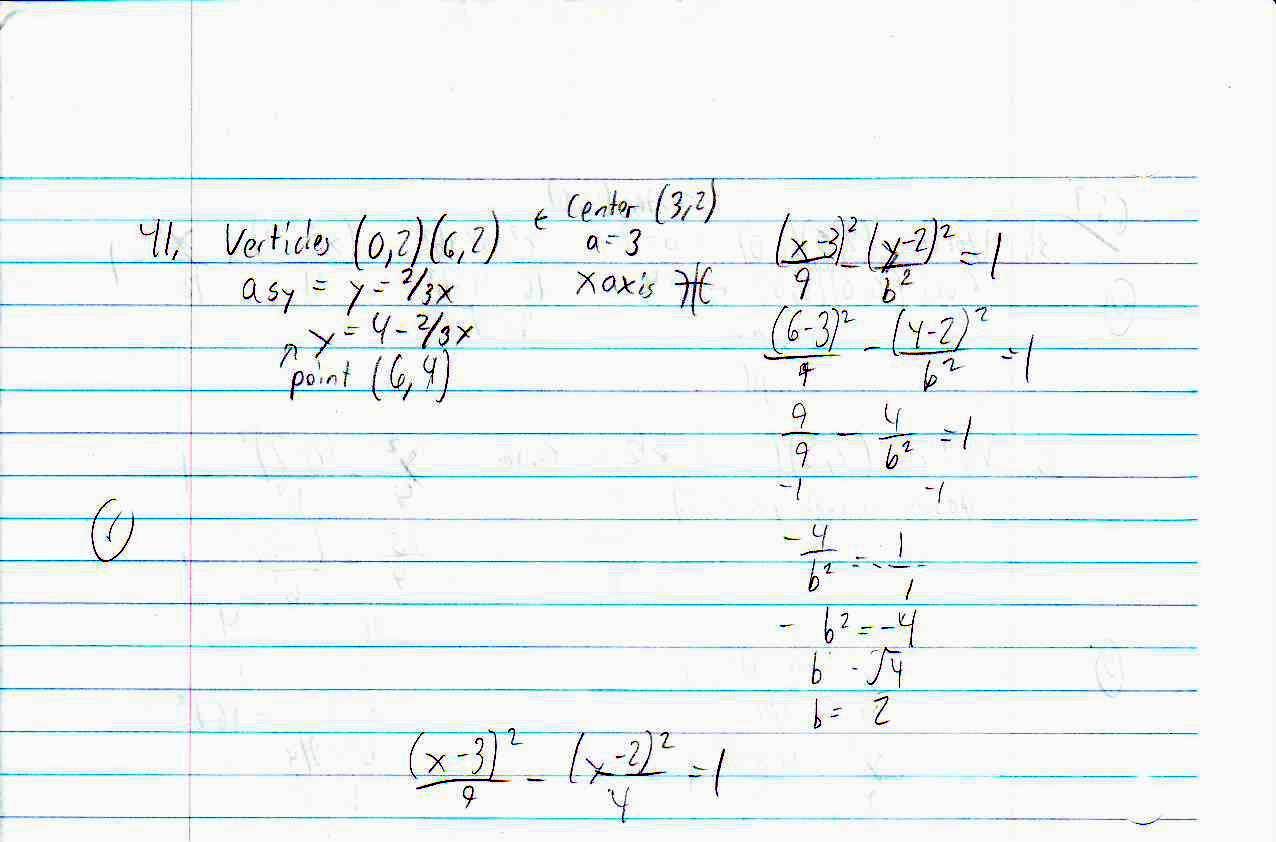 41, Verticles (0,2)(6,2) ← Center (3,2)
a = 3
x axis
asy = y = 2/3x
y = 4 - 2/3x
↗ point (6,4)
(x-3)²/9 - (y-2)²/b² = 1
(6-3)²/9 - (4-2)²/b² = 1
9/9 - 4/b² = 1
-1 -1
-4/b² = -1/1
- b² = -4
b - √4
b = 2
(x-3)²/9 - (y-2)²/4 = 1